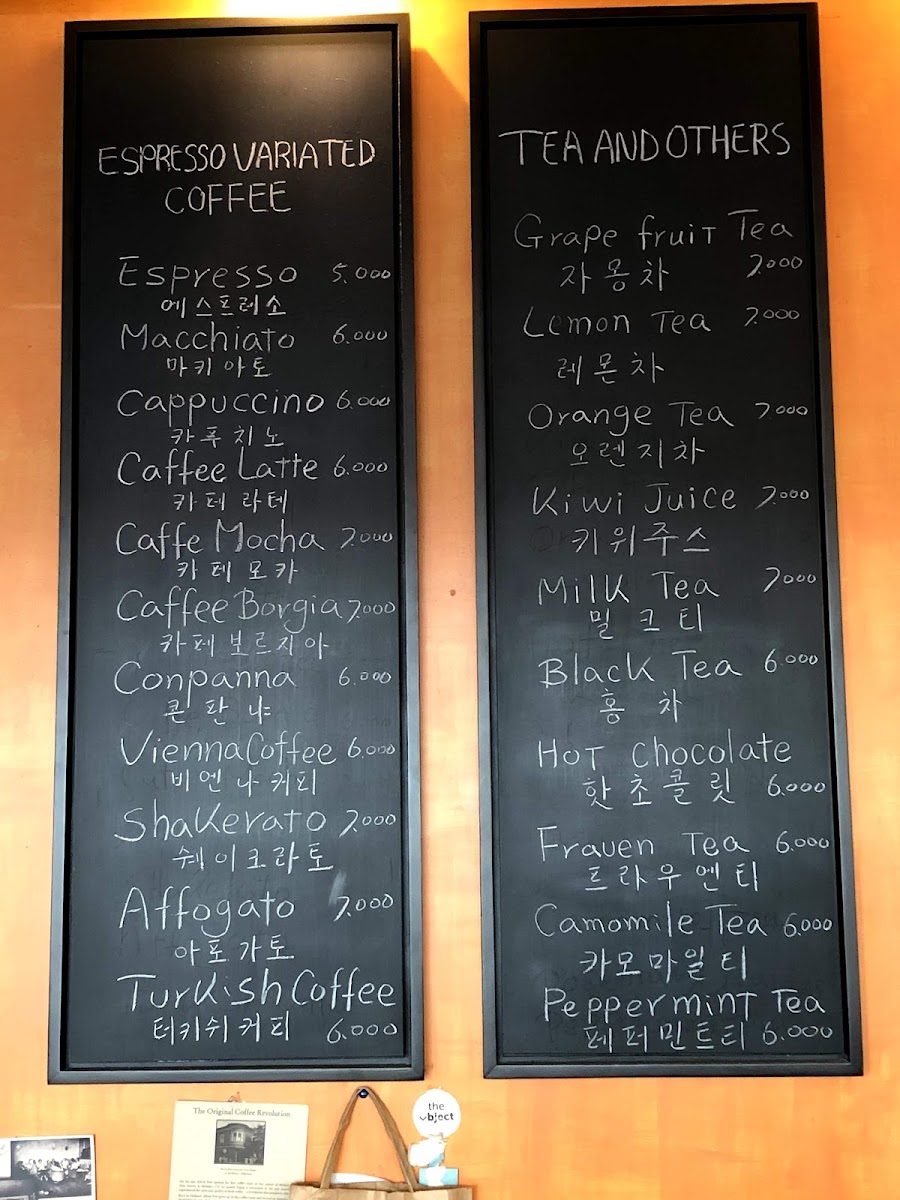 ESPRESSO VARIATED
COFFEE
Espresso 5.000
에스프레소
Macchiato 6.000
마키아토
Cappuccino 6.000
카푸치노
Caffee Latte 6.000
카페라테
Caffe Mocha 7.000
카페모카
Caffee Borgia 7.000
카페보르지아
Conpanna 6.000
콘판나
Vienna Coffee 6.000
비엔나커피
Shakerato 7.000
쉐이크라토
Affogato 7.000
아포가토
Turkish Coffee
터키쉬커피 6.000
TEA AND OTHERS
Grape fruit Tea
자몽차 7.000
Lemon Tea 7.000
레몬차
Orange Tea 7.000
오렌지차
Kiwi Juice 7.000
키위주스
Milk Tea 7.000
밀크티
Black Tea 6.000
홍차
Hot chocolate
핫초콜릿 6.000
Frauen Tea 6.000
프라우엔티
Camomile Tea 6.000
카모마일티
Peppermint Tea
페퍼민트티 6.000
The Original Coffee Revolution
the
object